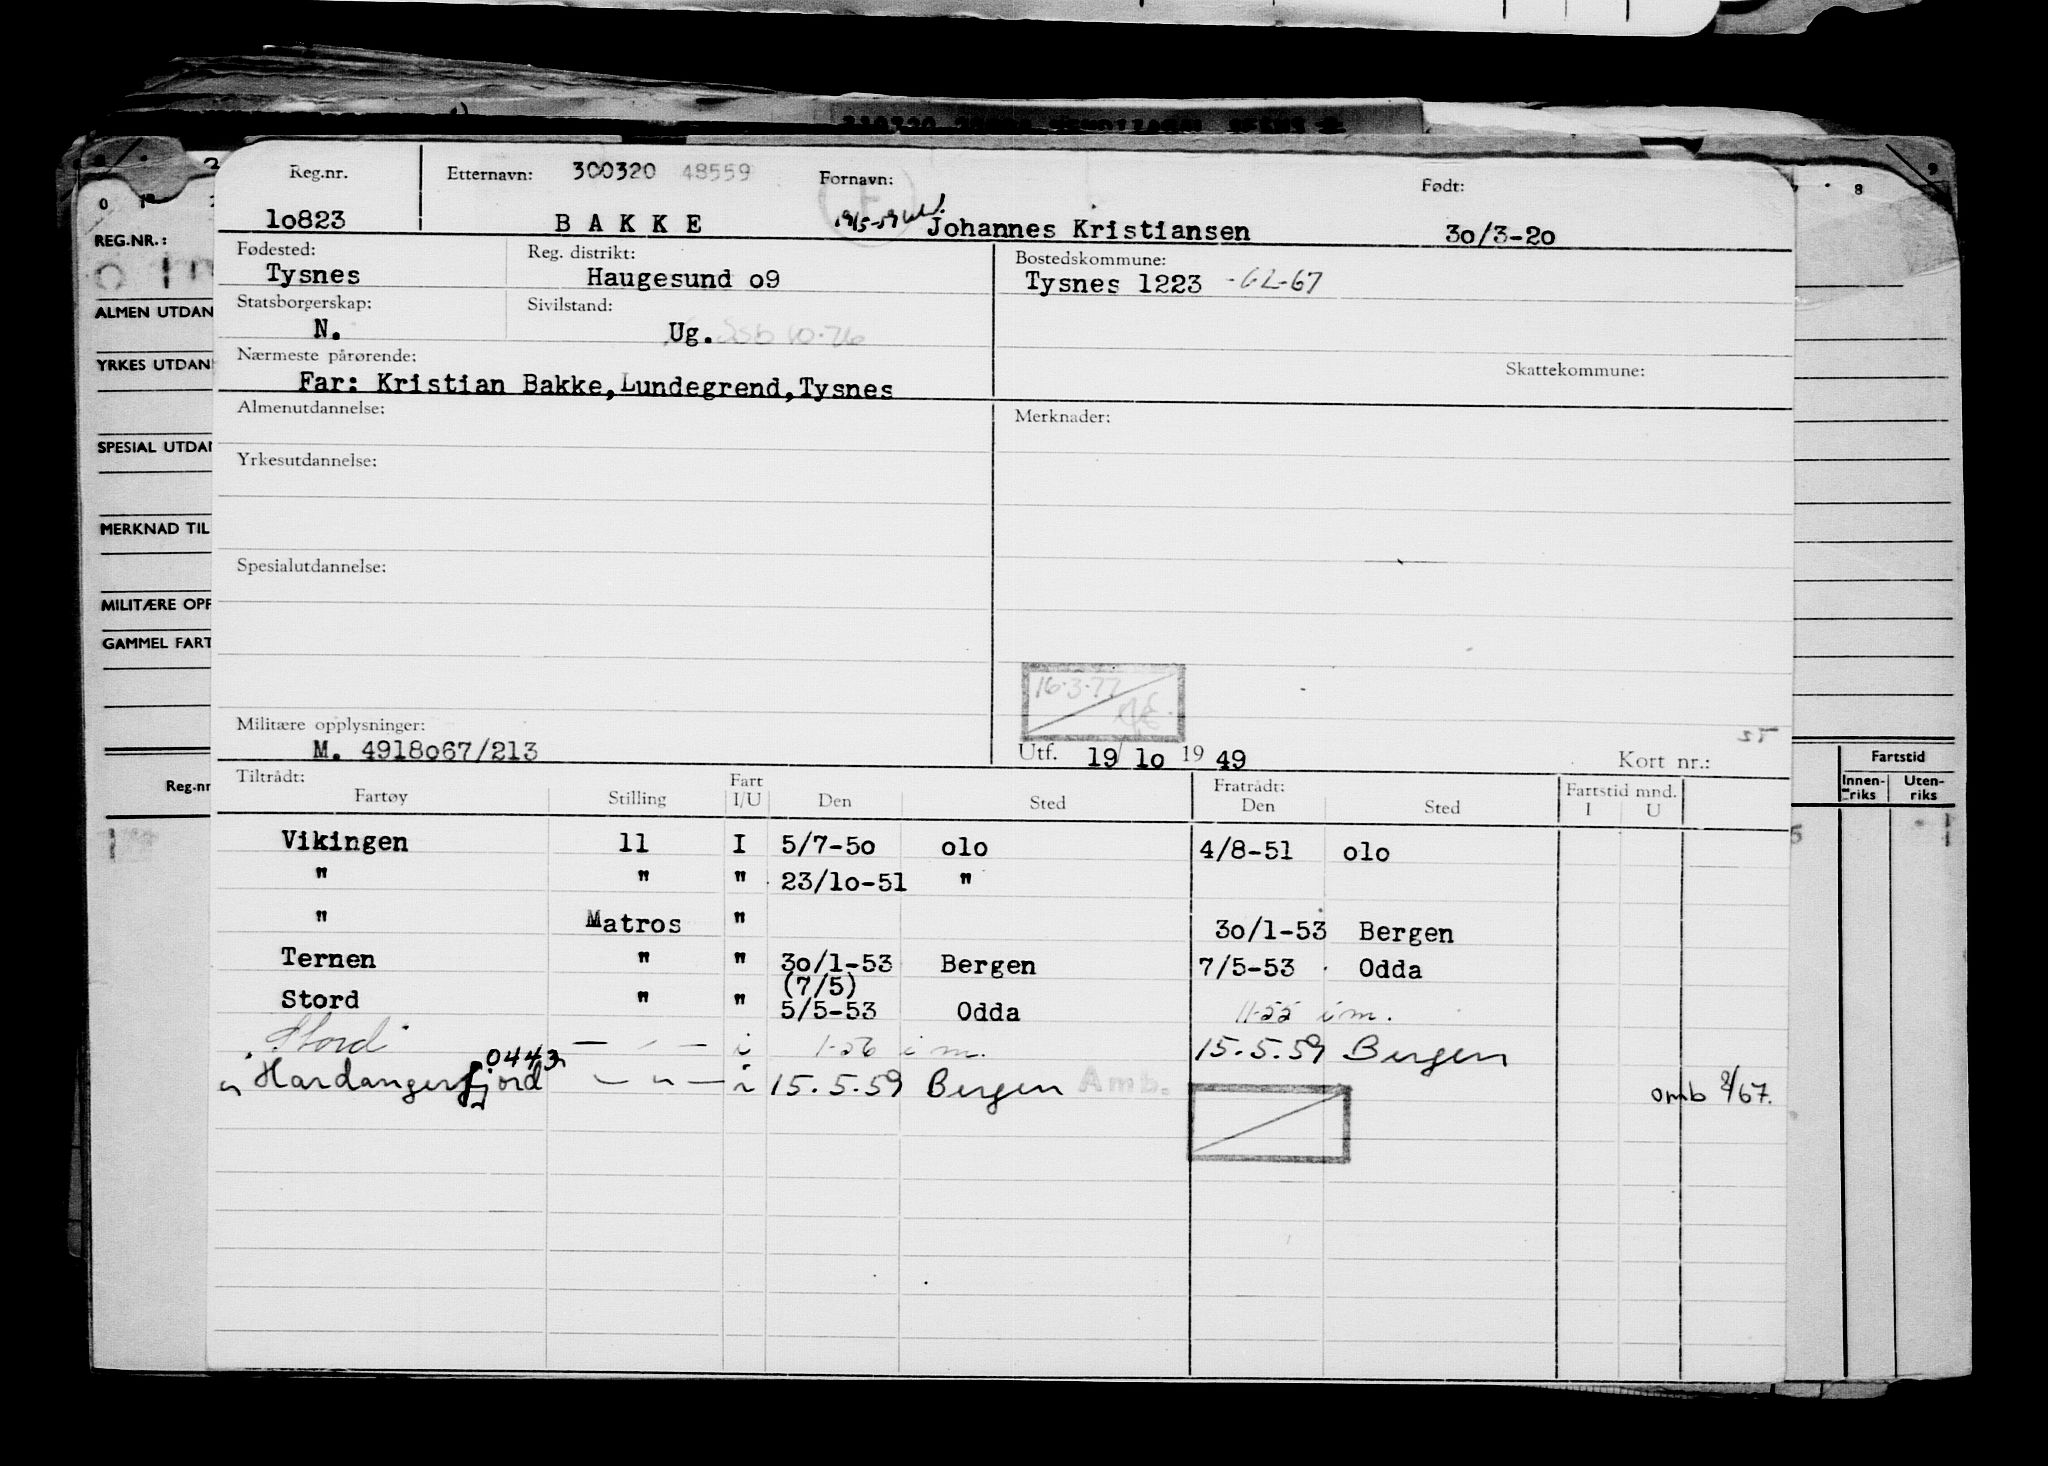 Reg.nr. Etternavn: 300320 48559 Fornavn: Født:
lo823 B A K K E Johannes Kristiansen 3o/3-2o
Fødested: Reg. distrikt: Bostedskommune:
Tysnes Haugesund o9 Tysnes 1223 -62-67
Statsborgerskap: Sivilstand:
N. Ug.
Nærmeste pårørende: Skattekommune:
Far: Kristian Bakke, Lundegrend, Tysnes
Almenutdannelse: Merknader:
Yrkesutdannelse:
Spesialutdannelse:
16.3.77
Militære opplysninger:
M. 4918o67/213 Utf. 19/lo 19 49 Kort nr.:
Tiltrådt: Fart Fratrådt: Fartstid mnd.
Fartøy Stilling I/U Den Sted Den Sted I U
Vikingen 11 I 5/7-5o olo 4/8-51 olo
" " " 23/lo-51 "
" Matros " 3o/1-53 Bergen
Ternen " " 3o/1-53 Bergen 7/5-53 Odda
(7/5)
Stord " " 5/5-53 Odda 11-55 i m.
Stord — " — i 1-56 i m. 15.5.59 Bergen
0443
Hardangerfjord — " — i 15.5.59 Bergen Amb. omb 8/67.
REG.NR.:
ALMEN UTDAN
YRKES UTDAN
SPESIAL UTDAN
MERKNAD TIL
MILITÆRE OPP
GAMMEL FART
Reg.nr
Fartstid
Innen-riks Uten-riks